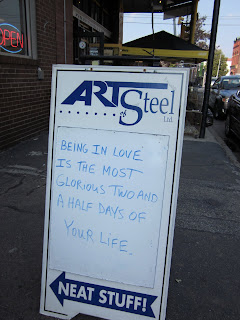 OPEN
ART of Steel
Ltd.
BEING IN LOVE
IS THE MOST
GLORIOUS TWO AND
A HALF DAYS OF
YOUR LIFE.
NEAT STUFF!